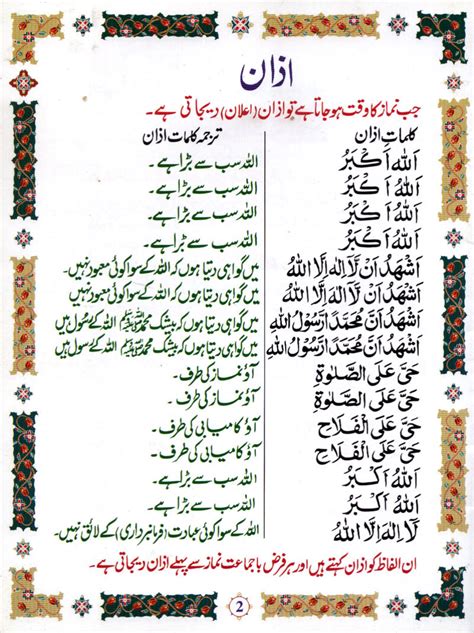 اذان
جب نماز کا وقت ہو جاتا ہے تو اذان (اعلان) دیجاتی ہے۔
کلمات اذان ترجمہ کلمات اذان
اَللهُ اَكْبَرُ اللہ سب سے بڑا ہے۔
اَللهُ اَكْبَرُ اللہ سب سے بڑا ہے۔
اَللهُ اَكْبَرُ اللہ سب سے بڑا ہے۔
اَللهُ اَكْبَرُ اللہ سب سے بڑا ہے۔
اَشْهَدُ اَنْ لَّا اِلٰهَ اِلَّا اللهُ میں گواہی دیتا ہوں کہ اللہ کے سوا کوئی معبود نہیں۔
اَشْهَدُ اَنْ لَّا اِلٰهَ اِلَّا اللهُ میں گواہی دیتا ہوں کہ اللہ کے سوا کوئی معبود نہیں۔
اَشْهَدُ اَنَّ مُحَمَّدًا رَّسُوْلُ اللهِ میں گواہی دیتا ہوں کہ بیشک محمد ﷺ اللہ کے رسول ہیں
اَشْهَدُ اَنَّ مُحَمَّدًا رَّسُوْلُ اللهِ میں گواہی دیتا ہوں کہ بیشک محمد ﷺ اللہ کے رسول ہیں
حَىَّ عَلَى الصَّلٰوةِ آؤ نماز کی طرف۔
حَىَّ عَلَى الصَّلٰوةِ آؤ نماز کی طرف۔
حَىَّ عَلَى الْفَلَاحِ آؤ کامیابی کی طرف۔
حَىَّ عَلَى الْفَلَاحِ آؤ کامیابی کی طرف۔
اَللهُ اَكْبَرُ اللہ سب سے بڑا ہے۔
اَللهُ اَكْبَرُ اللہ سب سے بڑا ہے۔
لَا اِلٰهَ اِلَّا اللهُ اللہ کے سوا کوئی عبادت (فرمانبرداری) کے لائق نہیں۔
ان الفاظ کو اذان کہتے ہیں اور ہر فرض با جماعت نماز سے پہلے اذان دیجاتی ہے۔
2